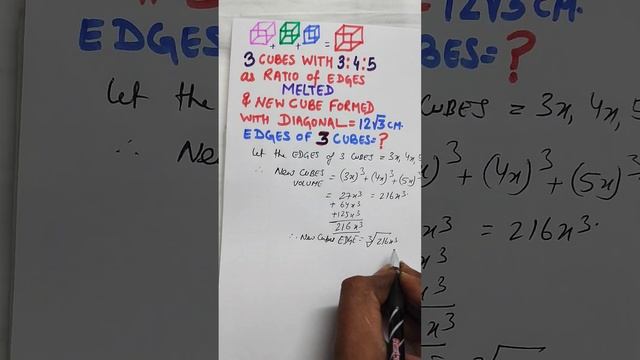 + + =
3 CUBES WITH 3:4:5
as RATIO of EDGES
MELTED
& NEW CUBE FORMED
WITH DIAGONAL = 12√3 CM.
EDGES OF 3 CUBES = ?
Let the EDGES of 3 CUBES = 3x, 4x, 5
∴ NEW CUBES VOLUME = (3x)³ + (4x)³ + (5x)³
= 27x³ = 216x³.
+ 64x³
+ 125x³
216x³
∴ New Cube EDGE = ∛216x³